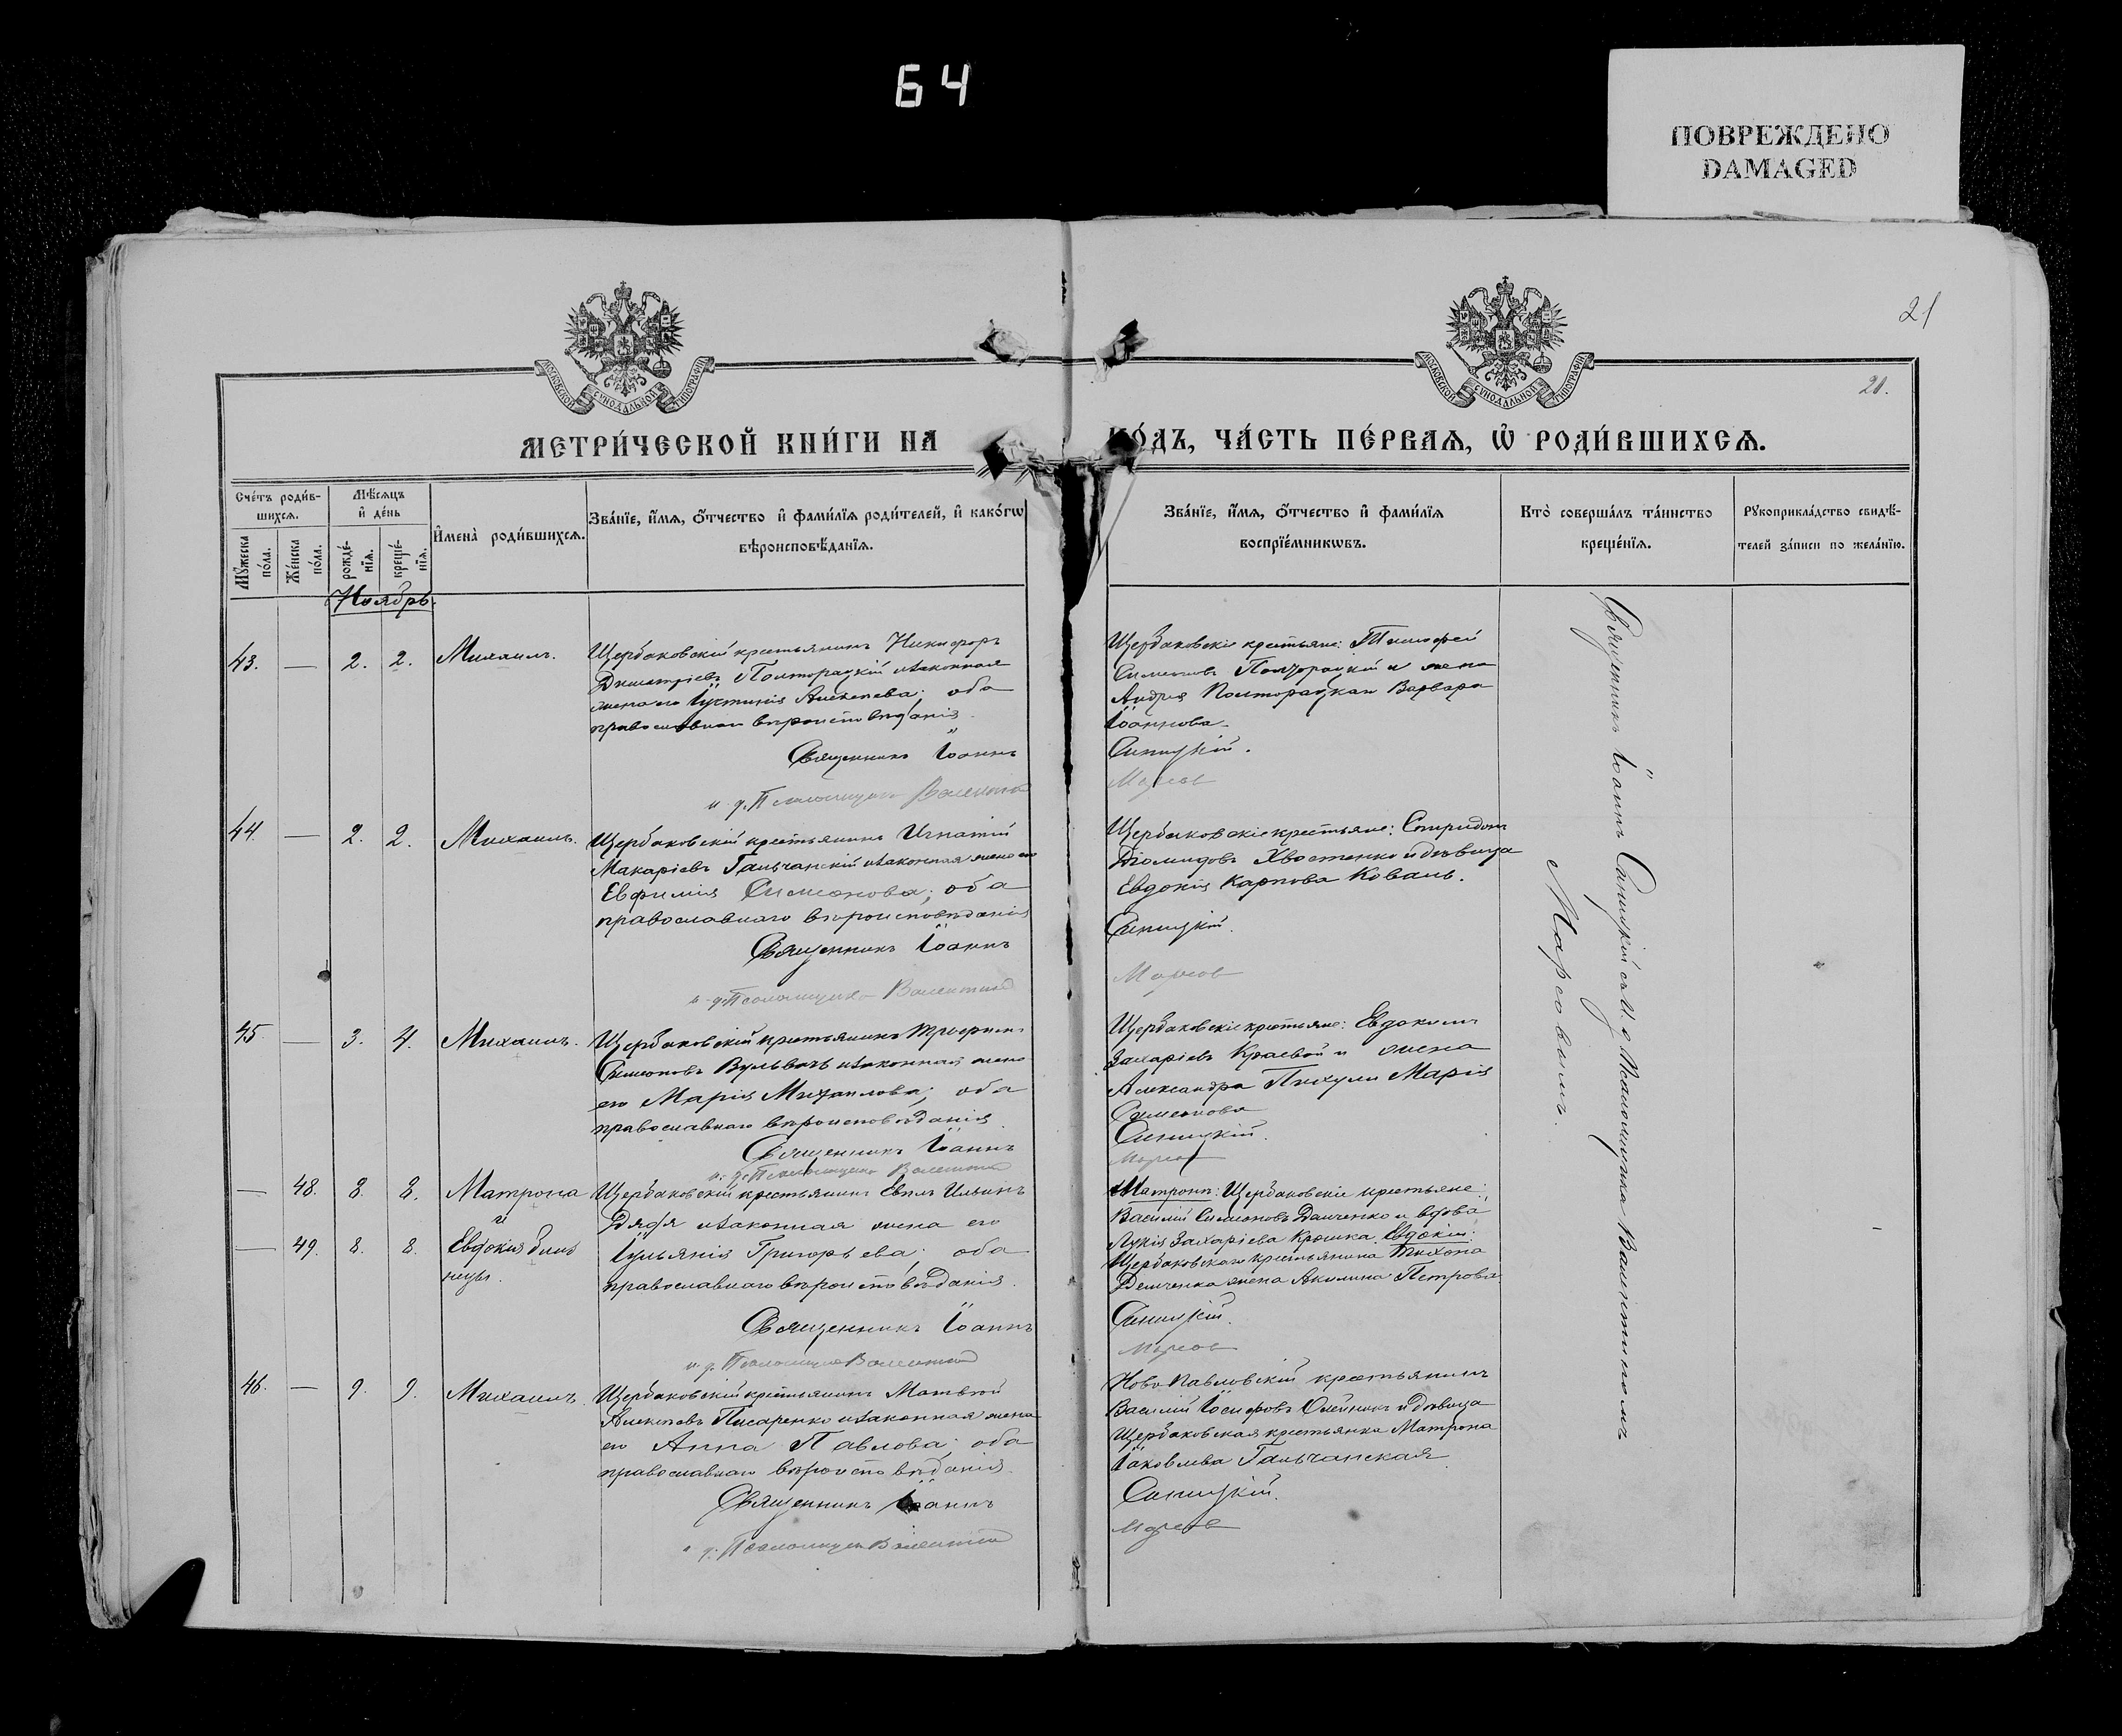 64
ПОВРЕЖДЕНО
DAMAGED
21
21.
МОСКОВСКОЙ СѴНОДАЛЬНОЙ ТИПОГРАФІИ
МОСКОВСКОЙ СѴНОДАЛЬНОЙ ТИПОГРАФІИ
МЕТРИ́ЧЕСКОЙ КНИ́ГИ НА
ГО́ДЪ, ЧА́СТЬ ПЕ́РВАѦ, Ѡ҆ РОДИ́ВШИХСѦ.
Сче́тъ роди́в-
шихсѧ.
Мѣ́сѧцъ
и҆ де́нь
Мꙋ́жеска
по́ла.
Же́нска
по́ла.
рожде́-
нїѧ.
креще́-
нїѧ.
И҆мена̀ роди́вшихсѧ.
Зва́нїе, и҆́мѧ, ѻ҆́тчество и҆ фами́лїѧ роди́телей, и҆ како́гѡ
вѣроисповѣ́данїѧ.
Зва́нїе, и҆́мѧ, ѻ҆́тчество и҆ фами́лїѧ
воспрїе́мникѡвъ.
Кто̀ соверша́лъ та́инство
креще́нїѧ.
Рꙋкоприкла́дство свидѣ́-
телей за́писи по жела́нїю.
Ноябрь.
43. — 2. 2. Михаилъ.
Щербаковскій крестьянинъ Никифоръ
Димитріевъ Полторацкій и законная
жена его Іустинія Алексеева; оба
православнаго вѣроисповѣданія.
Священникъ Іоаннъ
и. д. Псаломщика Валентинъ
Щербаковскіе крестьяне: Тимофей
Симеоновъ Полторацкій и жена
Андрея Полторацкая Варвара
Іоаннова.
Синицкій.
Марсов
44. — 2. 2. Михаилъ.
Щербаковскій крестьянинъ Игнатій
Макаріевъ Гальчанскій и законная жена его
Евфимія Симеонова; оба
православнаго вѣроисповѣданія
Священникъ Іоаннъ
и. д. Псаломщика Валентинъ
Щербаковскіе крестьяне: Спиридонъ
Діомидовъ Хвостенко и дѣвица
Евдокія Карпова Коваль.
Синицкій.
Марсов
45 — 3. 4. Михаилъ.
Щербаковскій крестьянинъ
Симеоновъ и законная жена
его Марія Михаилова; оба
православнаго вѣроисповѣданія
Священникъ Іоаннъ
и. д. Псаломщика Валентинъ
Щербаковскіе крестьяне: Евдокимъ
Захаріевъ Краевой и жена
Александра Пихули Марія
Симеонова
Синицкій.
Марсов
— 48. 8. 8. Матрона
и
— 49. 8. 8. Евдокія близ
нецы.
Щербаковскій крестьянинъ Евплъ Ильинъ
Дядя и законная жена его
Іульянія Григорьева; оба
православнаго вѣроисповѣданія.
Священникъ Іоаннъ
и. д. Псаломщика Валентинъ
Матроны: Щербаковскіе крестьяне:
Василій Симеоновъ Данченко и вдова
Лукія Захаріева Крошка. Евдокіи:
Щербаковскаго крестьянина Тихона
Демченка жена Акилина Петрова.
Синицкій.
Марсов
46. — 9. 9. Михаилъ.
Щербаковскій крестьянинъ Матвѣй
Алексѣевъ Писаренко и законная жена
его Анна Павлова; оба
православнаго вѣроисповѣданія.
Священникъ Іоаннъ
и. д. Псаломщика Валентинъ
Ново Павловскій крестьянинъ
Василій Іосифовъ Олейникъ и дѣвица
Щербаковская крестьянка Матрона
Іаковлева Гальчанская
Синицкій.
Марсов
Священникъ Іоаннъ Синицкій съ и. д. Псаломщика Валентиномъ
Марсовымъ.